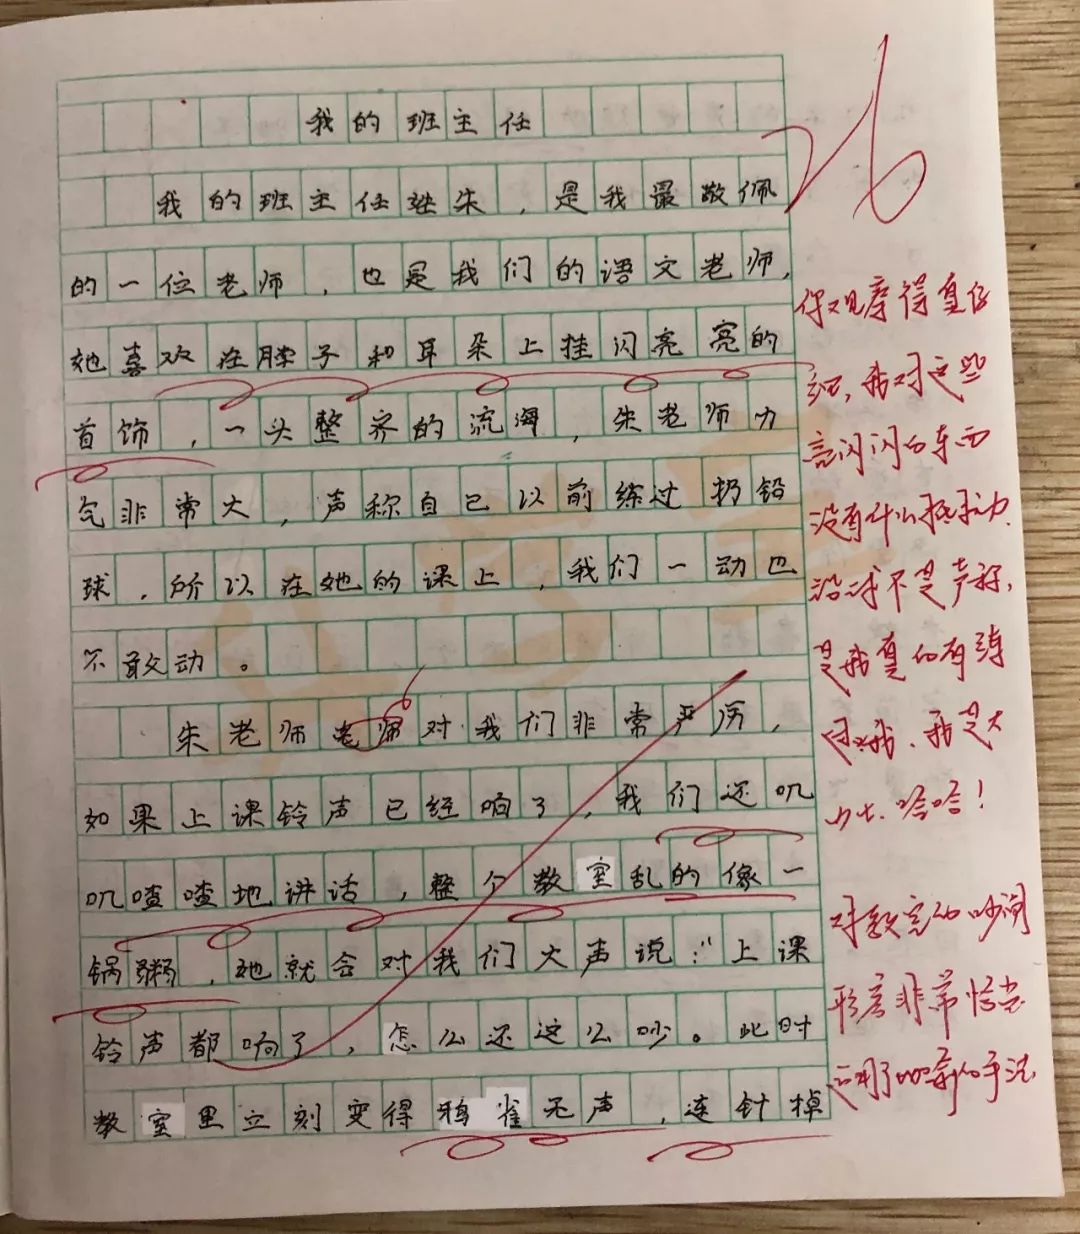 我的班主任
我的班主任姓朱，是我最敬佩
的一位老师，也是我们的语文老师，
她喜欢在脖子和耳朵上挂闪亮亮的
首饰，一头整齐的流海，朱老师力
气非常大，声称自己以前练过扔铅
球，所以在她的课上，我们一动也
不敢动。
朱老师老师对我们非常严厉，
如果上课铃声已经响了，我们还叽
叽喳喳地讲话，整个教室乱的像一
锅粥，她就会对我们大声说："上课
铃声都响了，怎么还这么吵。此时
教室里立刻变得鸦雀无声，连针掉
26
你观摩得真仔
细，我对这些
亮闪闪的东西
没有什么抵抗力.
铅球不是声称，
是我真的有练
过哦，我是大
力士.哈哈！
对教室的吵闹
形容非常恰当
运用了比喻的手法